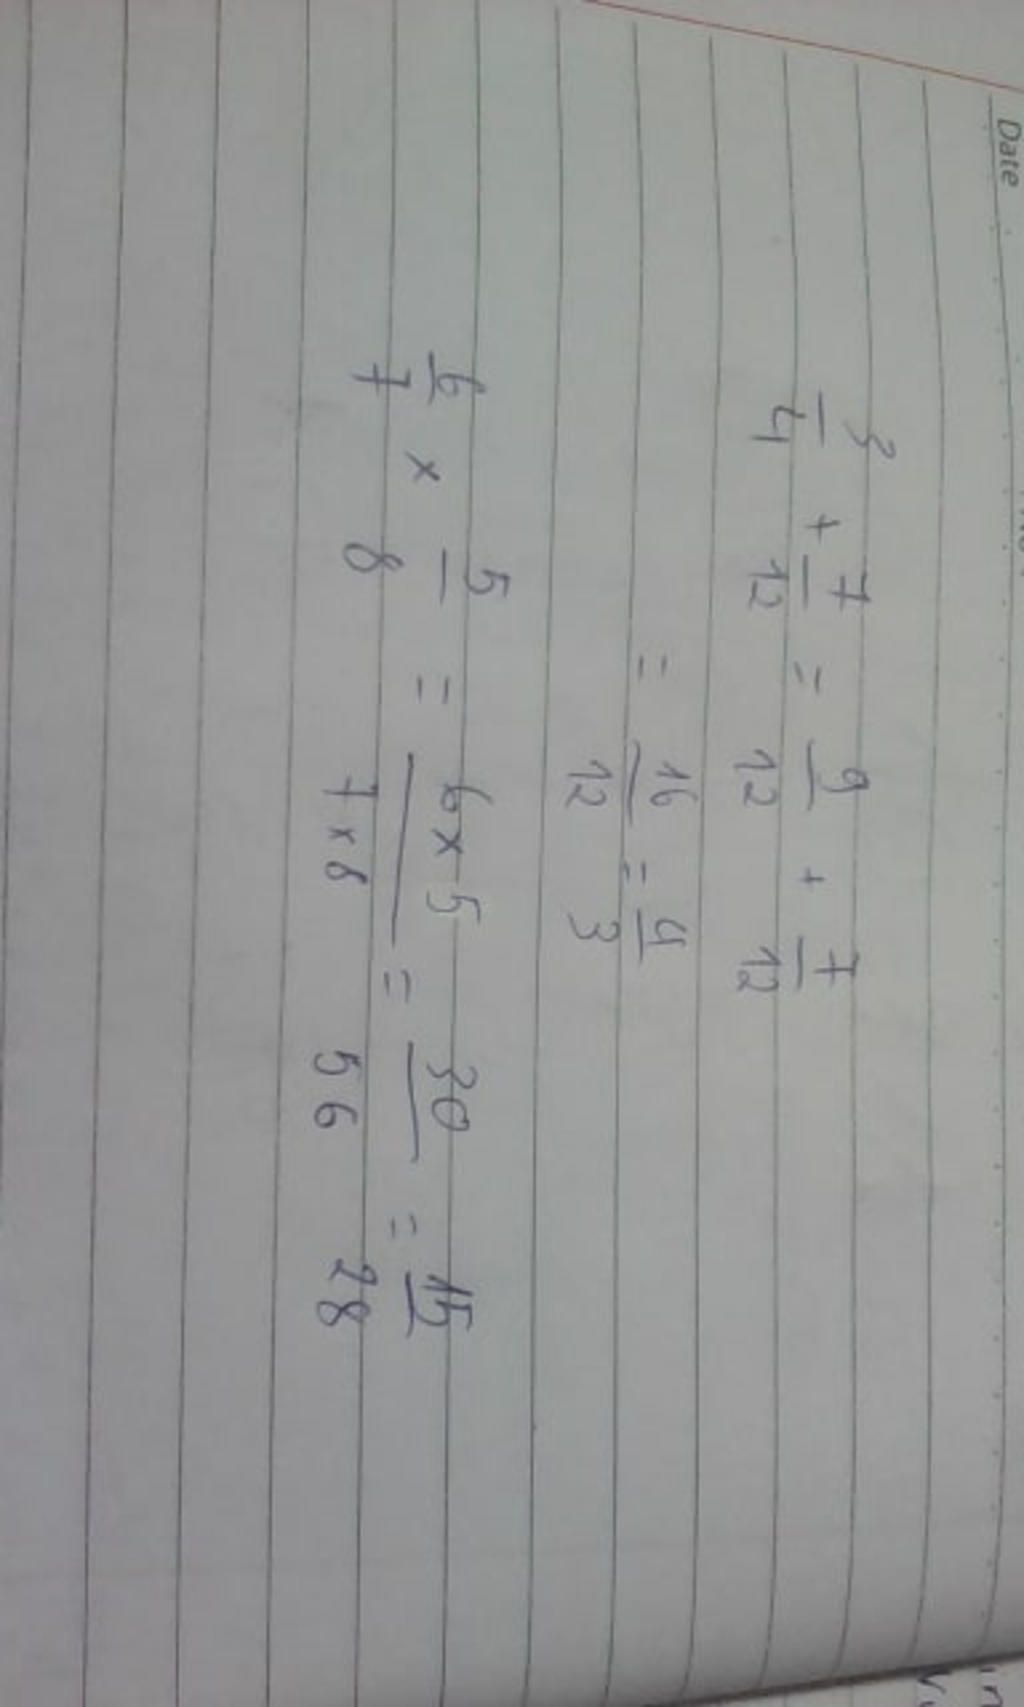 Date
3/4 + 7/12 = 9/12 + 7/12
= 16/12 = 4/3
6/7 × 5/8 = 6×5/7×8 = 30/56 = 15/28